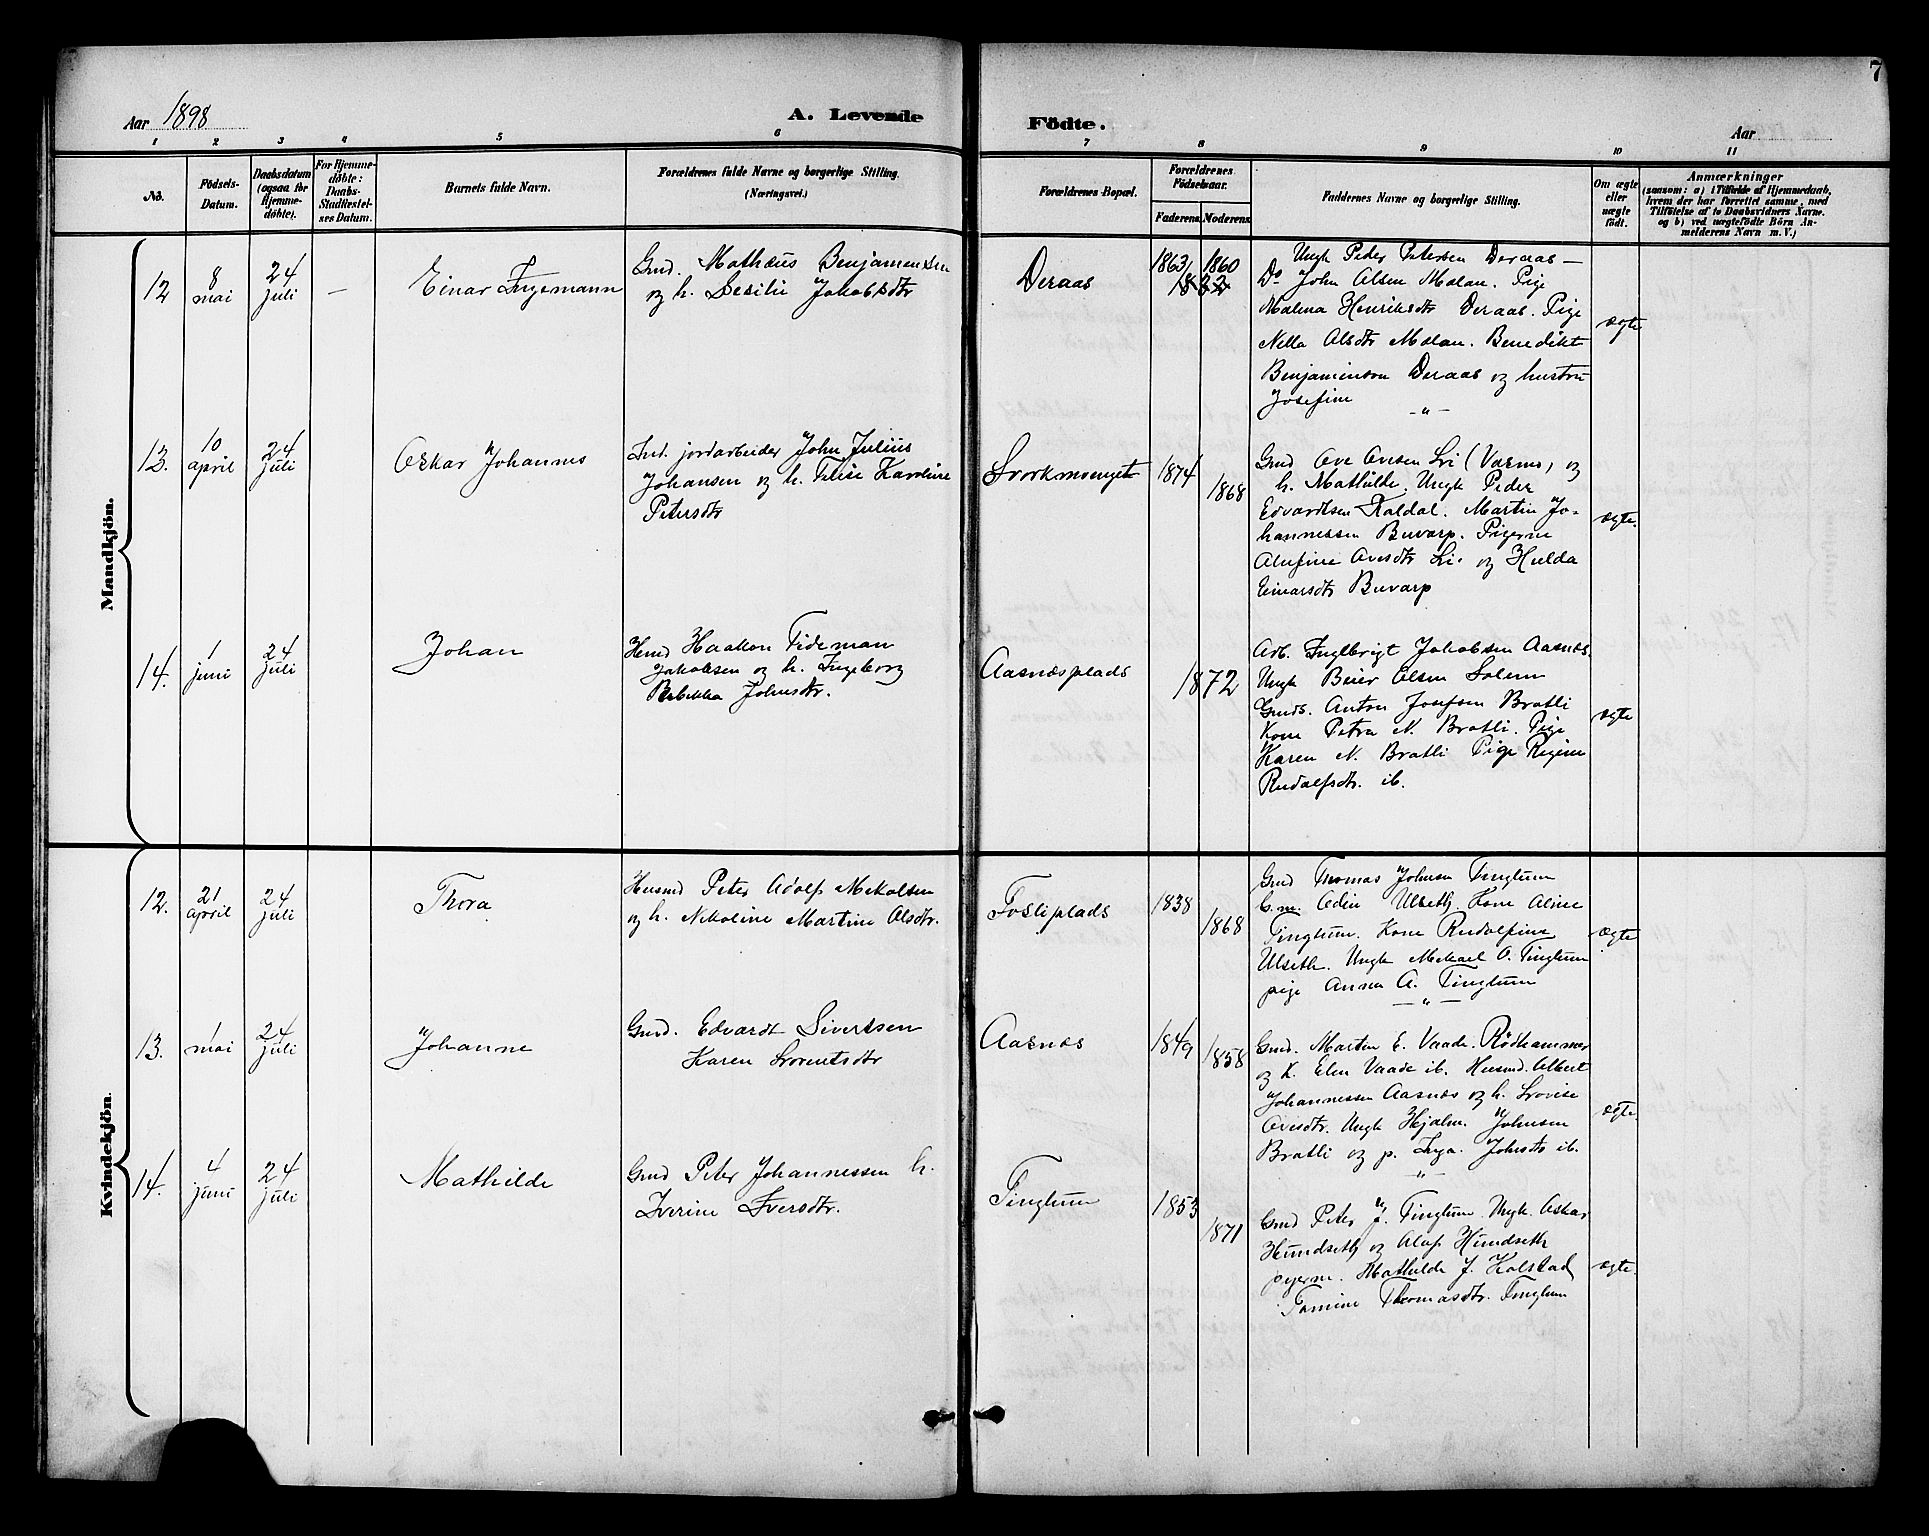 7
Aar 1898
A. Levende
Födte.
Aar
1
2
3
4
5
6
7
8
9
10
11
No.
Födsels-
Datum.
Daabsdatum
(ogsaa for
Hjemme-
døbte).
For Hjemme-
døbte:
Daabs-
Stadfæstel-
ses Datum.
Barnets fulde Navn.
Forældrenes fulde Navne og borgerlige Stilling.
(Næringsvei.)
Forældrenes Bopæl.
Forældrenes
Fødselsaar.
Faderens.
Moderens.
Faddernes Navne og borgerlige Stilling.
Om ægte
eller
uægte
født.
Anmærkninger
(saasom: a) i Tilfælde af Hjemmedaab,
hvem der har forrettet samme, med
Tilføielse af to Daabsvidners Navne.
og b) ved uægtefødte Börn An-
melderens Navn m. V.)
Mandkjön.
12
8
mai
24
juli
—
Einar Ingemann
Gmd. Mathæus Benjaminsen
og h. Desilie Jakobsdtr
Deraas
1863
1860
Ungk Peder Petersen Deraas —
Do John Olsen Molan. Pige
Malena Henriksdtr Deraas. Pige
Nella Olsdtr Molan. Benedikt
Benjaminson Deraas og hustru
Josefine
—"—
ægte
13.
10
april
24
juli
Oskar Johannes
Ind. jordarbeider John Julius
Johansen og h. Elise Karoline
Petersdtr
Svorkmoenget
1874
1868
Gmd Ove Ovesen Li (Værnes) og
h. Mathilde. Ungk Peder
Edvardtsen Kaldal. Martin Jo-
hannessen Buvarp. Pigerne
Olufine Ovesdtr Li. og Hulda
Einarsdtr Buvarp
ægte.
14.
1
juni
24
juli
Johan
Haakon Tideman
Jakobsen og h. Ingeborg
Rebekka Johnsdtr.
Aasnesplads
1872
Arb. Inglbrigt Jakobsen Aasnes.
Ungk Beier Olsen Solem
Gmds. Anton Josefsen Bratli
Kone Petra N. Bratli. Pige
Karen N. Bratli Pige Regine
Rudolfsdtr. ib.
ægte
Kvindekjön.
12.
21
april
24
juli
Thora
Husmd Peter Adolf Mekalsen
og h. Nikoline Martine Olsdtr.
Fosliplads
1838
1868
Gmd Thomas Johnsen Tinglum
G.m. Odin Ulseth. Kone Aline
Tinglum. Kone Rudolfine
Ulseth. Ungk Mekael O. Tinglum
pige Anna A. Tinglum
—"—
ægte
13.
1
mai
24
juli
Johanne
Gmd. Edvardt Sivertsen
Karen Lorentsdtr
Aasnes
1849
1858
Gmd. Martin E. Vaade. Rödhammer
og K. Elen Vaade ib. Husmd. Albert
Johannessen Aasnes og h. Lovise
Ovesdtr. Ungk Hjalm. Johnsen
Bratli og p. Inga. Johsdtr ib.
"
ægte
14.
4
juni
24
juli
Mathilde
Gmd Peter Johannessen h.
Iverine Iversdtr.
Tinglum
1853
1871
Gmd Peter J. Tinglum. Ungk. Oskar
Hundseth og Oluf Hundseth
pigerne. Mathilde J. Kolstad
Tomine Thomasdtr. Tinglum
ægte.